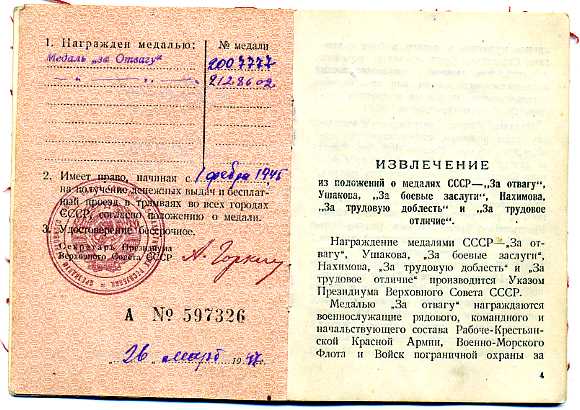 1. Награжден медалью: № медали
Медаль „за Отвагу“ 2007777
„ — „ — „ 2128602
2. Имеет право, начиная с 1 февра 1945
на получение денежных выдач и бесплат-
ный проезд в трамваях во всех городах
СССР, согласно положению о медали.
3. Удостоверение бессрочное.
Секретарь Президиума
Верховного Совета СССР А. Горкин
А № 597326
„26„ март 1947
ИЗВЛЕЧЕНИЕ
из положений о медалях СССР—„За отвагу“,
Ушакова, „За боевые заслуги“, Нахимова,
„За трудовую доблесть“ и „За трудовое
отличие“.
Награждение медалями СССР „За от-
вагу“, Ушакова, „За боевые заслуги“,
Нахимова, „За трудовую доблесть“ и „За
трудовое отличие“ производится Указом
Президиума Верховного Совета СССР.
Медалью „За отвагу“ награждаются
военнослужащие рядового, командного и
начальствующего состава Рабоче-Крестьян-
ской Красной Армии, Военно-Морского
Флота и Войск пограничной охраны за
4